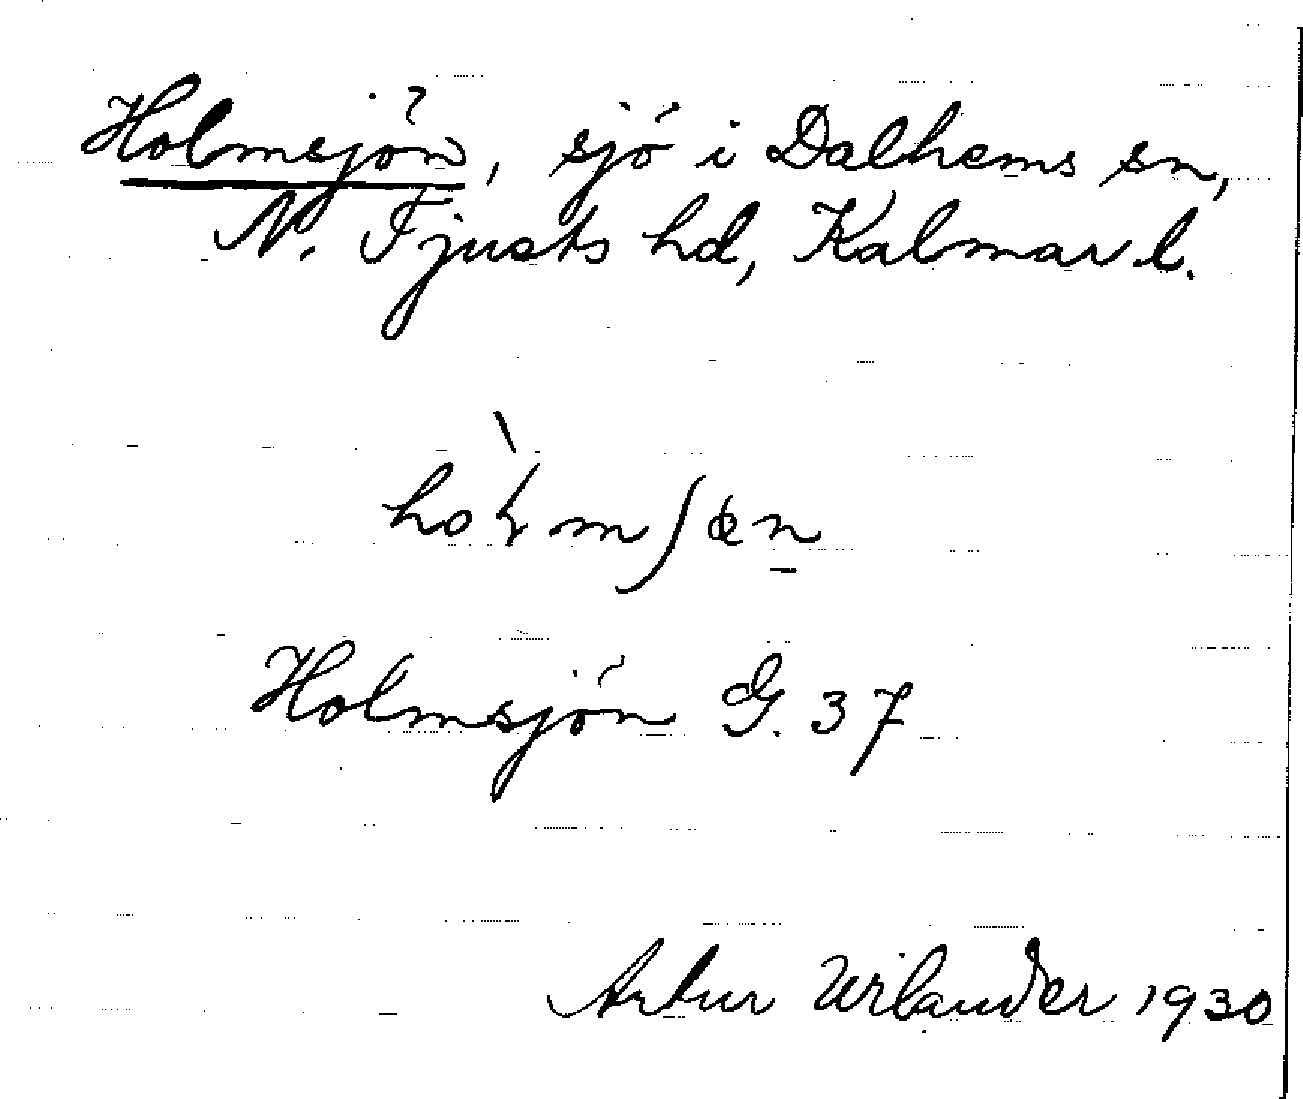 Holmsjön, sjö i Dalhems sn,
N. Tjusts hd, Kalmar l.
Holmsjön G. 37
Artur Wilander 1930